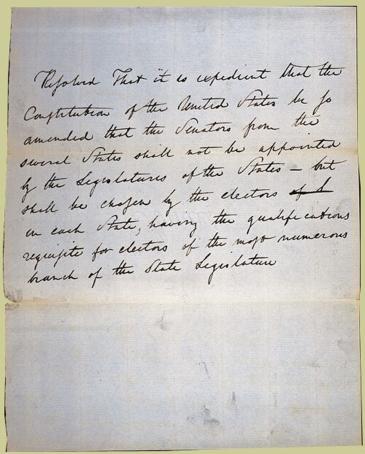 Resolved That it is expedient that the
Constitution of the United States be so
amended that the Senators from the
several States shall not be appointed
by the Legislatures of the States – but
shall be chosen by the electors
in each State, having the qualifications
requisite for electors of the most numerous
branch of the State Legislature